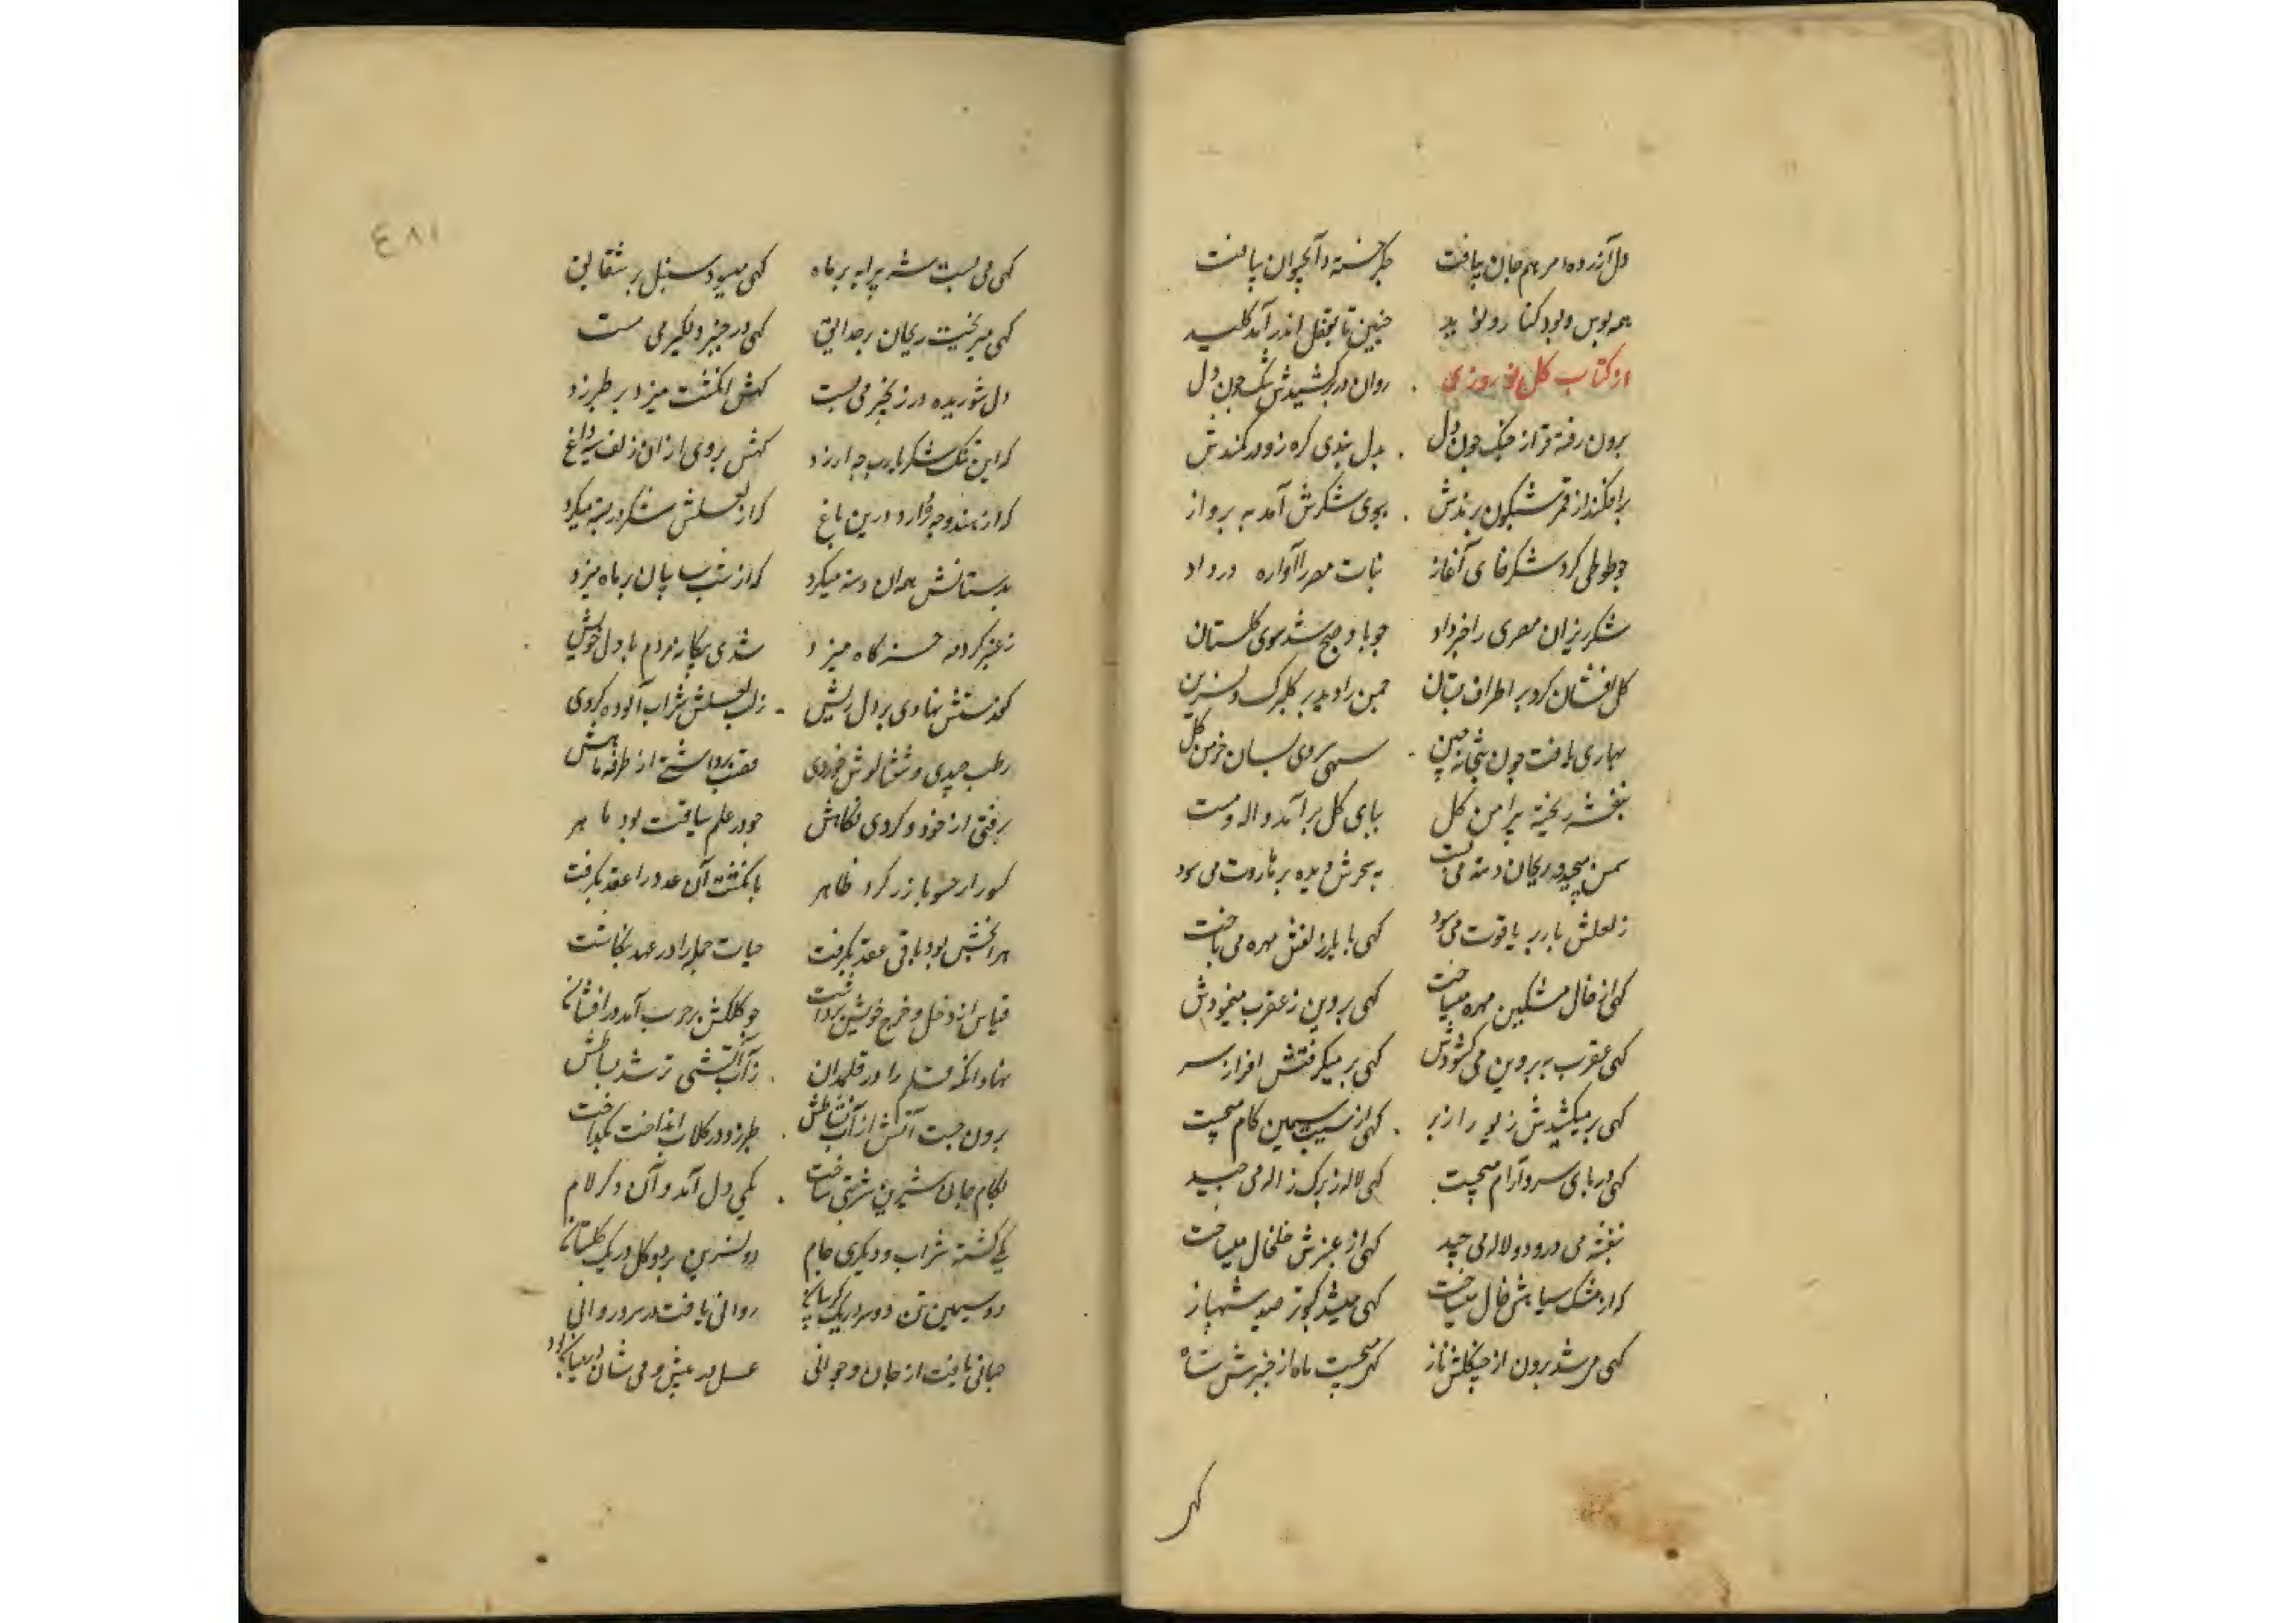 دل آزرده مرهم جان یافت جگر خسته را آبحیوان یافت
همه بوس و بود کنار و نوید چنین تا بقفل اندر آمد کلید
از کتاب کل نوروزی روان در بر کشیدش تنک چون دل
برون رفته قرار از چنک چون دل بدل بندی کره زد در کمندش
برافکند از قمر شبکون پرندش ببوی شکرش آمد به پرواز
چو طوطی کرد شکرخای آغاز نبات مصر را آوازه در داد
شکرریزان مصری را خبر داد چو باد صبح شد سوی کلستان
کل افشان کرد بر اطراف بستان چمن را دید پر کلبرک و نسرین
بهاری یافت چون بتخانه چین سهی سروی بسان خرمن کل
بنفشه ریخته پیرامن کل بپای کل برآمد واله و مست
سمن میچید و ریحان دسته می بست به سحرش دیده بر هاروت می سود
ز لعلش بار بر یاقوت می سود کهی با مار زلفش مهره می باخت
کهی از خال مشکین مهره میساخت کهی پروین ز عقرب مینمودش
کهی عقرب به پروین می کشودش کهی بر میکرفتش افراز سر
کهی بر میکشیدش زیور از بر کهی از سیب سیمین کام میجست
کهی در پای سرو آرام میجست کهی لاله ز برک ژاله می چید
بنفشه می درود و لاله می چید کهی از عنبرش خلخال میساخت
که از مشک سیاهش خال میساخت کهی میشد کبوتر صید شهباز
کهی می شد برون از چنکلش باز کهی میجست ماه از چنبرش شاه
کهی
٤٨١
کهی می بست شه پیرایه بر ماه کهی میسود سنبل بر شقایق
کهی میریخت ریحان بر حدایق کهی در چین زنجیر می مست
دل شوریده در زنجیر می بست کهش انکشت میزد بر طبرزد
که این تنک شکر یارب چه ارزد کهش بر روی از آن زلف سیه داغ
که از هندو چه دارد درین باغ که از لعلش شکر در پسته میکرد
بدستانش همان دسته میکرد که از شب سایبان بر ماه میزد
ز عنبر کرد مه خرکاه میزد شدی بیکانه مردم با دل خویش
کمند مستش نهادی بر دل ریش ز لب لعلش شراب آلوده کردی
رطب چیدی و شفتالوش خوردی نقاب برداشتی از طرف ماهش
برفتی از خود و کردی نکاهش چو در علم سیاقت بود ماهر
کسور از حشو بارز کرد ظاهر بانکشت آن عدد را عقد بکرفت
هر آنچش بود باقی عقد بکرفت حیات جمله را در عهد بنکاشت
قیاس از دخل و خرج خویش برداشت چو کلکش بر حرب آمد در افشانی
نهاد آنکه قلم را در قلمدان ز آب آتشی تر شد بساطش
برون جست آتش از آب نشاطش طبرزد در کلاب انداخت بکداخت
بکام جان شیرین شربتی ساخت یکی دل آمد و آن دکر لام
یکی کشته شراب و دیکری جام دو نسرین بر دو کل در یک کلستان
دو سیمین تن دو سر در یک کریبان روانی یافت در سرو روانی
جهانی یافت از جان و جوانی عسل در عیش و می شان در میان بود